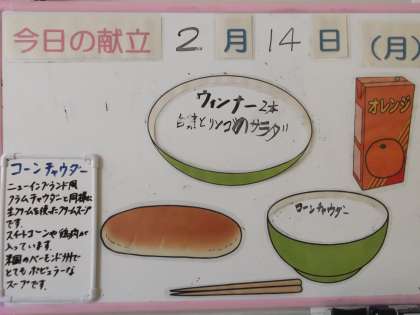 今日の献立 2月14日(月)
ウィンナー2本
白菜とリンゴのサラダ
オレンジ
コーンチャウダー
コーンチャウダー
ニューイングランド風
クラムチャウダーと同様に
生クリームを使ったクリームスープ
です。
スイートコーンや鶏肉が
入っています。
米国のバーモンド州で
とてもポピュラーな
スープです。